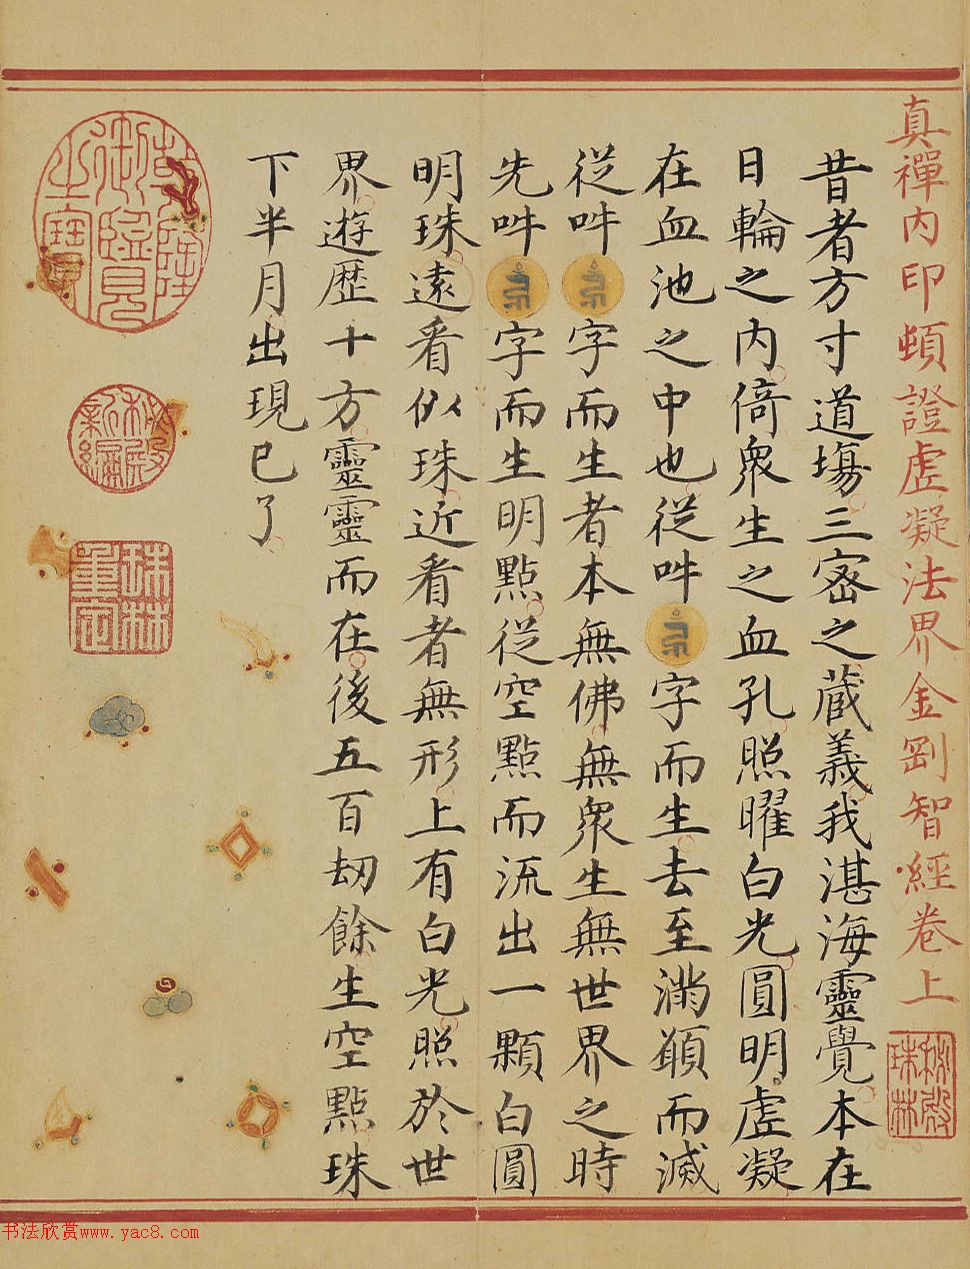 真禪内印頓證虛凝法界金剛智經卷上
昔者方寸道場三密之蔵義我湛海靈覺本在
日輪之内倚衆生之血孔照曜白光圓明虛凝
在血池之中也従吽字而生去至滿願而滅
従吽字而生者本無佛無衆生無世界之時
先吽字而生明點従空點而流出一顆白圓
明珠遠看似珠近看者無形上有白光照於世
界遊歷十方靈靈而在後五百劫餘生空點珠
下半月出現已了
乾隆御覽之寶
秘殿新編
珠林重定
秘殿珠林
书法欣赏www.yac8.com